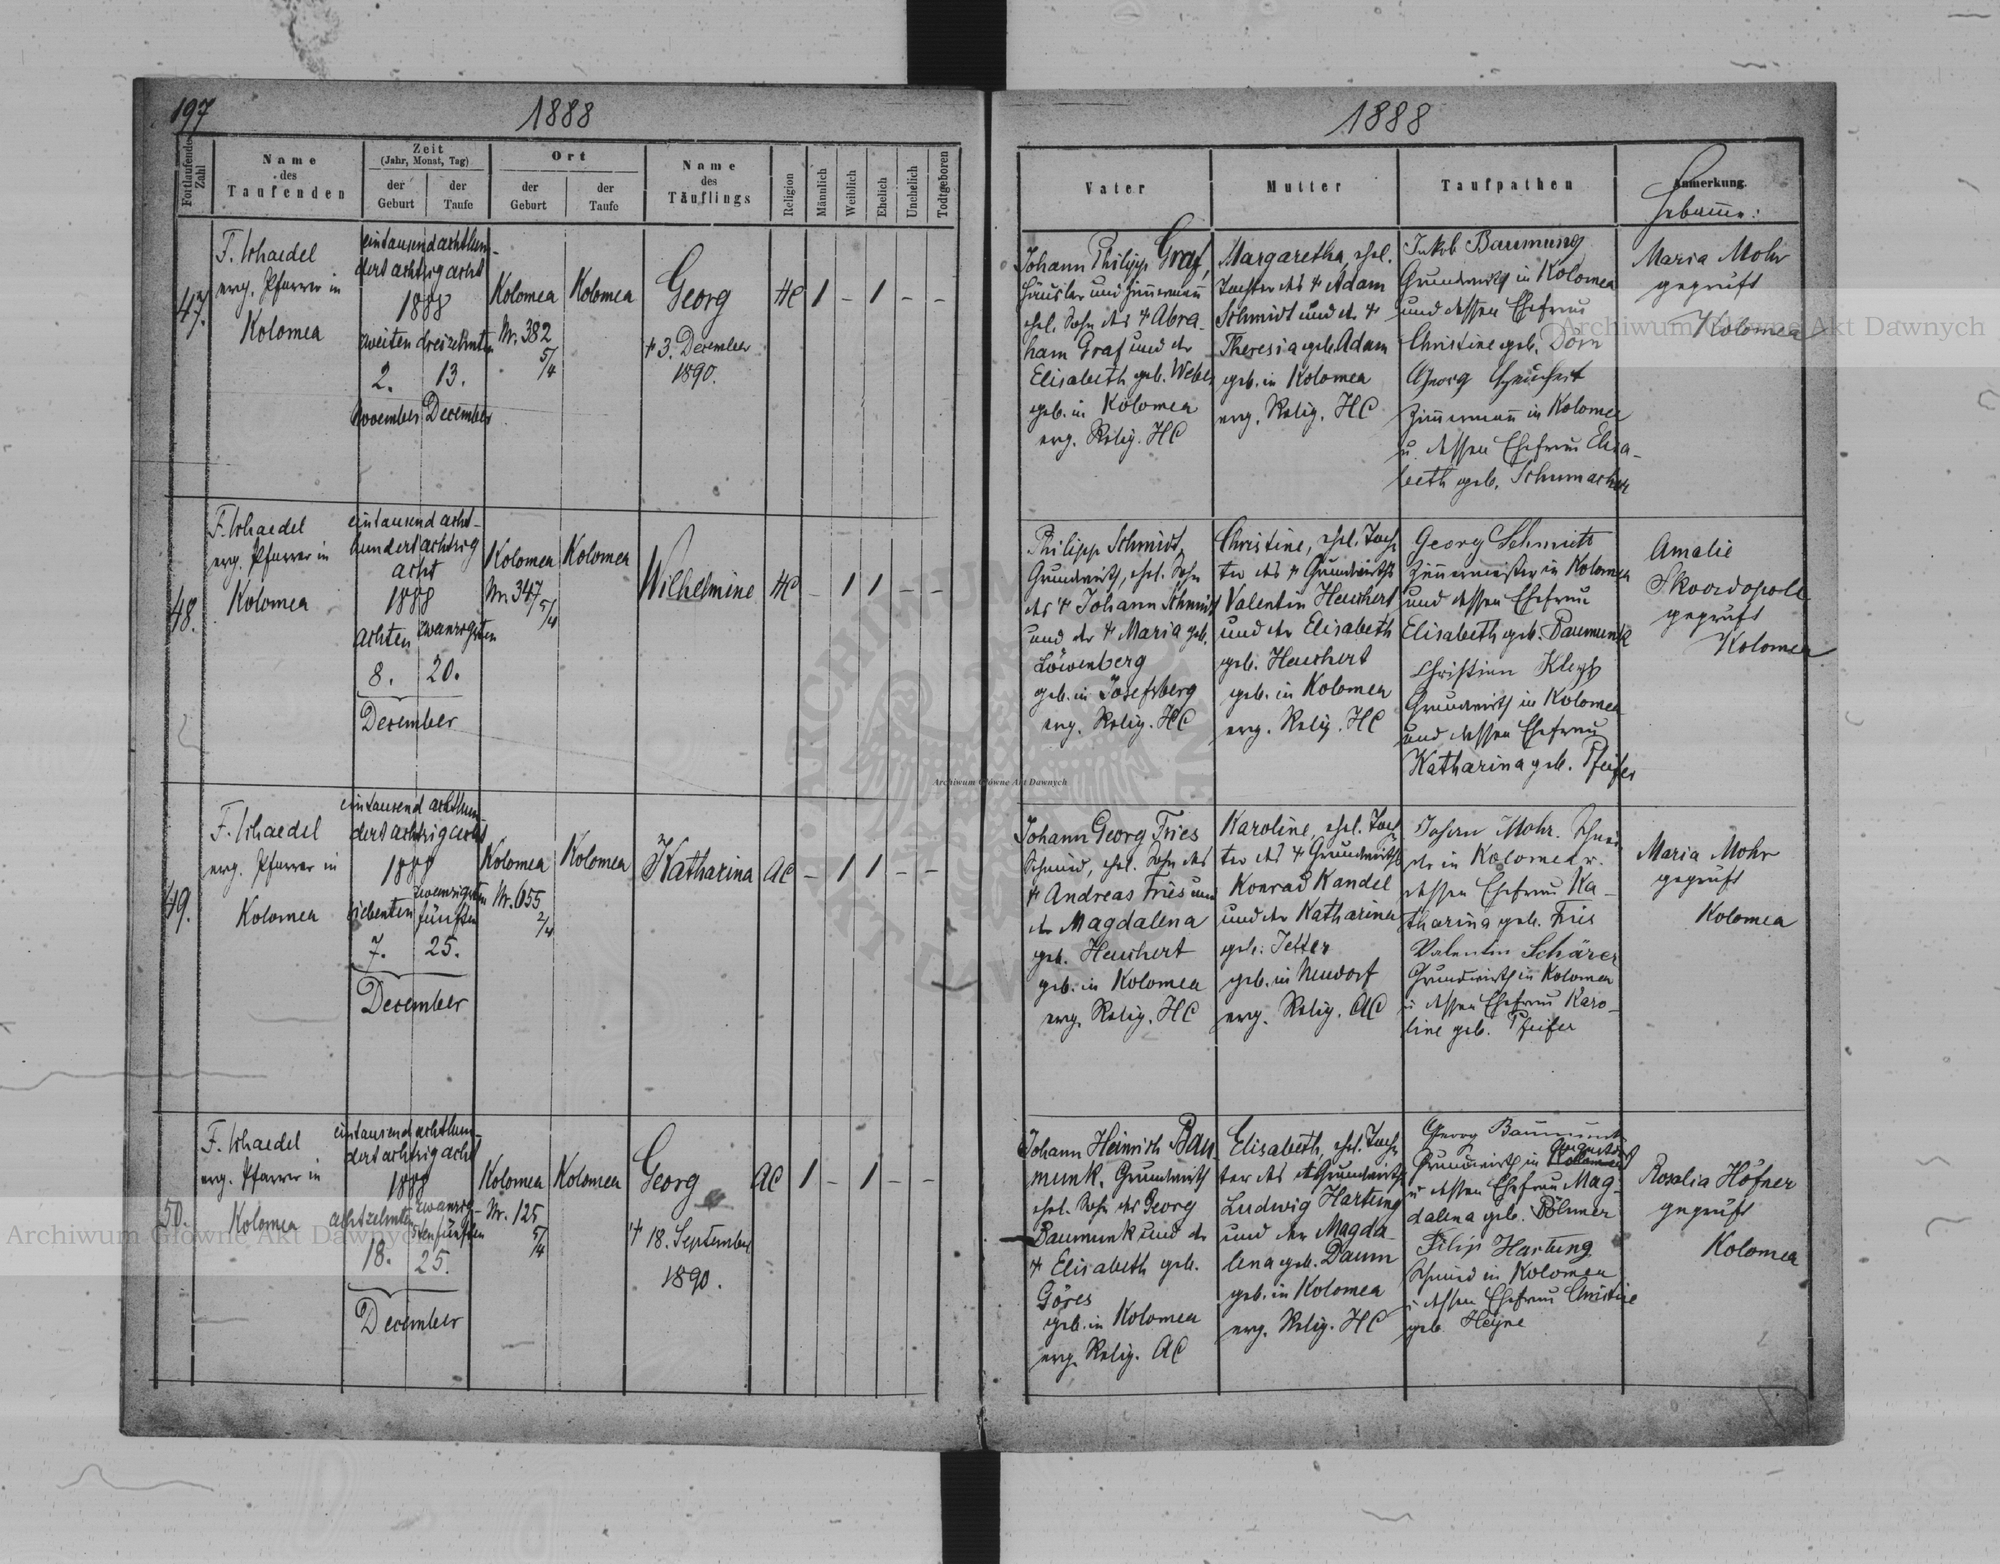 197
1888
Fortlaufende Zahl
Name
des
Taufenden
Zeit
(Jahr, Monat, Tag)
der
Geburt
der
Taufe
Ort
der
Geburt
der
Taufe
Name
des
Täuflings
Religion
Männlich
Weiblich
Ehelich
Unehelich
Todtgeboren
47.
erg. Pfarrer in
Kolomea
eintausend achthun-
dert achtzig acht
1888
zweiten dreizehnten
2. 13.
November December
Kolomea
Nr. 382
5/4
Kolomea
Georg
† 3. December
1890.
HC
1 – 1 – –
48.
erg. Pfarrer in
Kolomea
eintausend acht-
hundert achtzig
acht
1888
achten zwanzigsten
8. 20.
December
Kolomea
Nr. 347
5/4
Kolomea
Wilhelmine
HC
– 1 1 – –
49.
erg. Pfarrer in
Kolomea
eintausend achthun-
dert achtzig acht
1888
siebenten
fünften
7. 25.
December
Kolomea
Nr. 655
2/4
Kolomea
Katharina
AC
– 1 1 – –
50.
erg. Pfarrer in
Kolomea
eintausend achthun-
dert achtzig acht
1888
achtzehnten
18. 25.
December
Kolomea
Nr. 125
5/4
Kolomea
Georg
† 18. September
1890.
AC
1 – 1 – –
1888
Vater
Mutter
Taufpathen
Anmerkung.
Hebamme:
Johann Philipp Graf,
Häusler und Zimmermann
ehel. Sohn des † Abra-
ham Graf und der
Elisabeth geb. Weber
geb. in Kolomea
evg. Relig. HC
Margaretha, ehel.
Tochter des † Adam
Schmidt und der †
Theresia geb. Adam
geb. in Kolomea
evg. Relig. HC
Jakob Baumung
Grundwirth in Kolomea
und dessen Ehefrau
Christine geb. Dorn
Georg Heuchert
Zimmermann in Kolomea
u. dessen Ehefrau Elisa-
beth geb. Schumacher
Maria Mohr
geprüft
Kolomea
Philipp Schmidt,
Grundwirth, ehel. Sohn
des † Johann Schmidt
und der † Maria geb.
Löwenberg
geb. in Josefsberg
evg. Relig. HC
Christine, ehel. Toch-
ter des † Grundwirths
Valentin Heuchert
und der Elisabeth
geb. Heuchert
geb. in Kolomea
evg. Relig. HC
Georg Schmidt
Zimmermeister in Kolomea
und dessen Ehefrau
Elisabeth geb. Baumunk
Christian
Grundwirth in Kolomea
und dessen Ehefrau
Katharina geb. Pfeifer
Amalie
geprüft
Kolomea
Johann Georg Fries
Schmied, ehel. Sohn des
† Andreas Fries und
der Magdalena
geb. Heuchert
geb. in Kolomea
evg. Relig. HC
Karoline, ehel. Toch-
ter des † Grundwirths
Konrad Kandel
und der Katharina
geb. Jetter
geb. in Neudorf
evg. Relig. AC
Johann Mohr. Schnei-
der in Kolomea u.
dessen Ehefrau Ka-
tharina geb. Fries
Valentin Schärer
Grundwirth in Kolomea
u dessen Ehefrau Karo-
line geb. Pfeifer
Maria Mohr
geprüft
Kolomea
Johann Heinrich Bau
munk, Grundwirth
ehel. Sohn des Georg
Baumunk und der
† Elisabeth geb.
Göres
geb. in Kolomea
evg. Relig. AC
Elisabeth, ehel. Toch-
ter des Grundwirths
Ludwig Hartung
und der Magda-
lena geb. Daum
geb. in Kolomea
evg. Relig. HC
Georg Baumunk
Grundwirth in Kolomea
u dessen Ehefrau Mag-
dalena geb.
Filip Hartung
Schmied in Kolomea
u dessen Ehefrau Christine
geb. Heyne
Rosalia Höfner
geprüft
Kolomea
Archiwum Główne Akt Dawnych
Archiwum Główne Akt Dawnych
Archiwum Główne Akt Dawnych